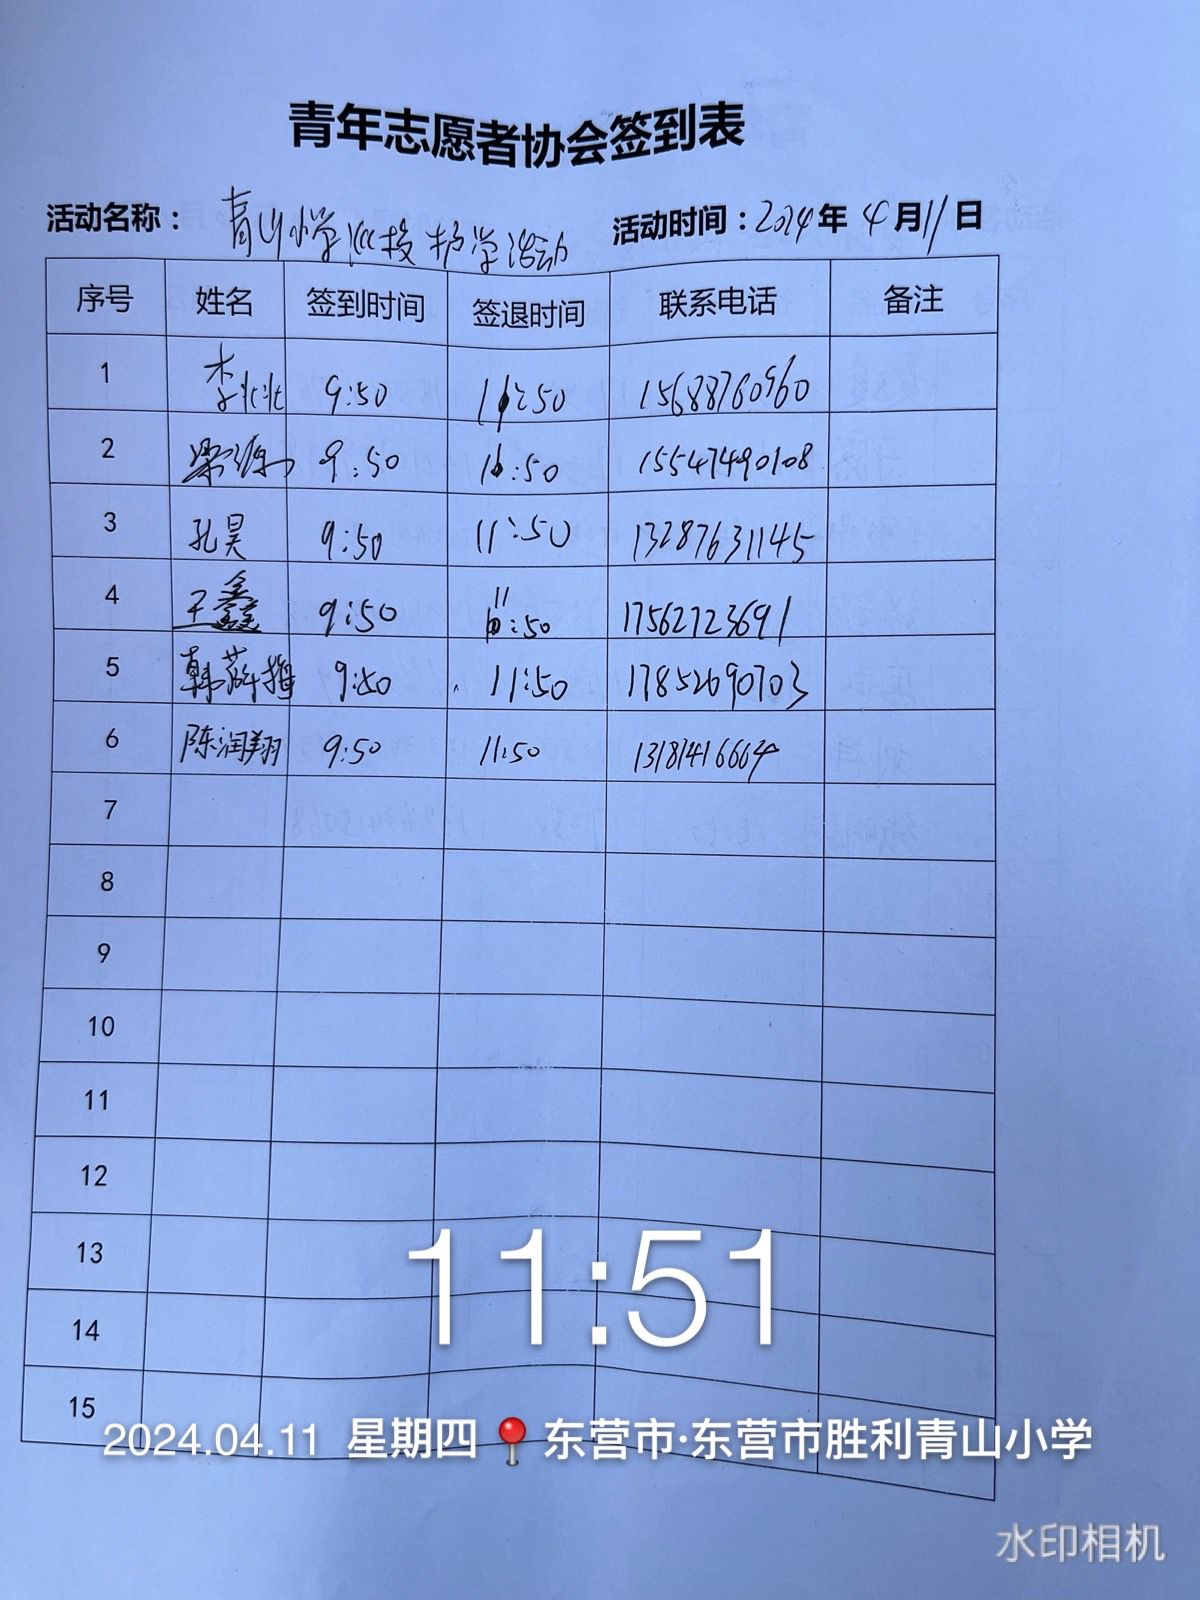 青年志愿者协会签到表
活动名称： 青山小学巡校护学活动 活动时间：2024年4月11日
序号 姓名 签到时间 签退时间 联系电话 备注
1 李壮壮 9:50 11:50 15688760960
2 梁源 9:50 11:50 15547490108
3 孔昊 9:50 11:50 13287631145
4 王鑫 9:50 11:50 17562723691
5 韩 9:50 11:50 17852690703
6 陈润翔 9:50 11:50 13181416664
7
8
9
10
11
12
13
11:51
14
15
2024.04.11 星期四 东营市·东营市胜利青山小学
水印相机